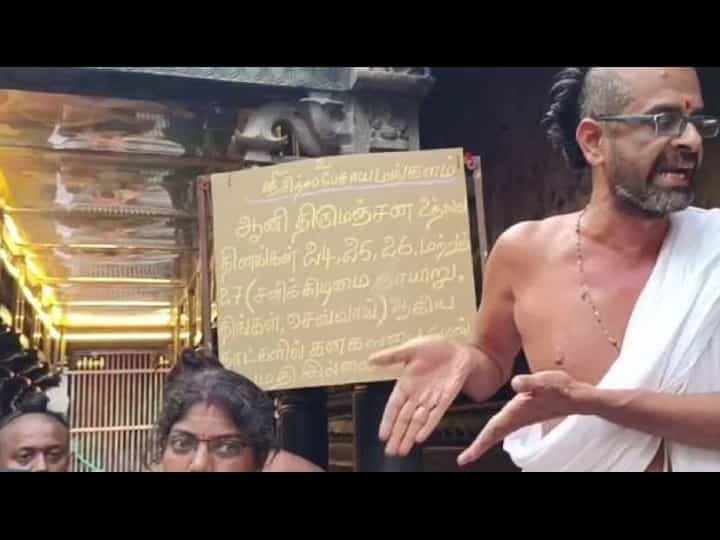 ஆனி திருமஞ்சன உற்சவ
தினங்கள் 24, 25, 26, மற்றும்
27 (சனிக்கிழமை, ஞாயிறு,
திங்கள், செவ்வாய்) ஆகிய
நாட்களில் கனகசபை